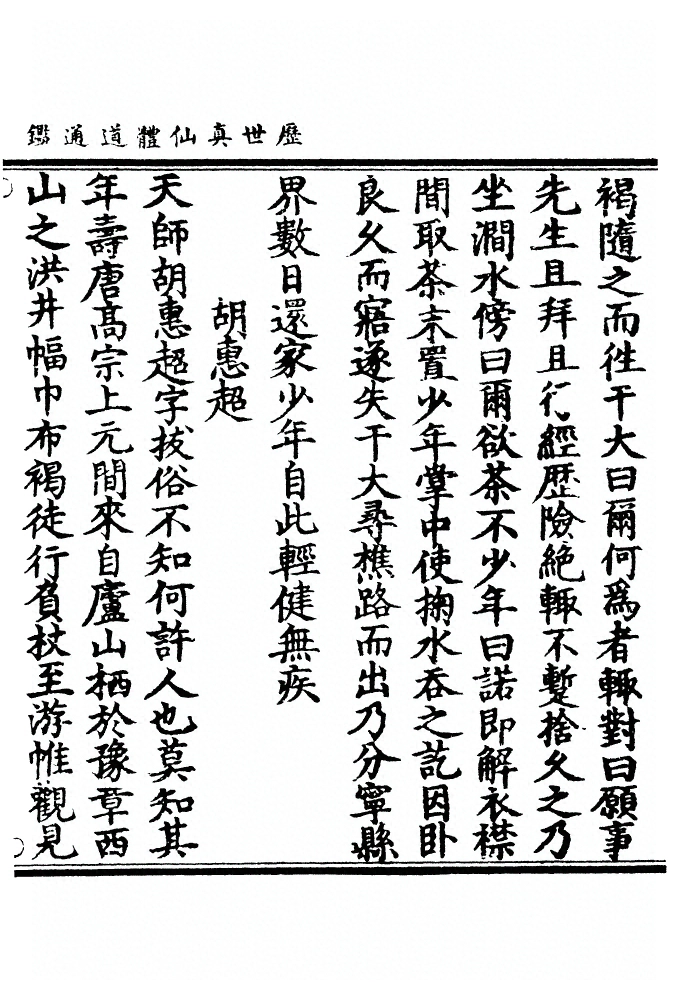 歷世真仙體道通鑑
褐隨之而徃干大曰爾何爲者輙對曰願事
先生且拜且行經歷險絶輙不蹔捨久之乃
坐澗水傍曰爾欲茶不少年曰諾即解衣襟
間取茶末置少年掌中使掬水吞之訖因卧
良久而寤遂失干大尋樵路而出乃分寧縣
界數日還家少年自此輕健無疾
胡惠超
天師胡惠超字拔俗不知何許人也莫知其
年壽唐髙宗上元間來自廬山栖於豫章西
山之洪井幅巾布褐徒行負杖至游帷觀見